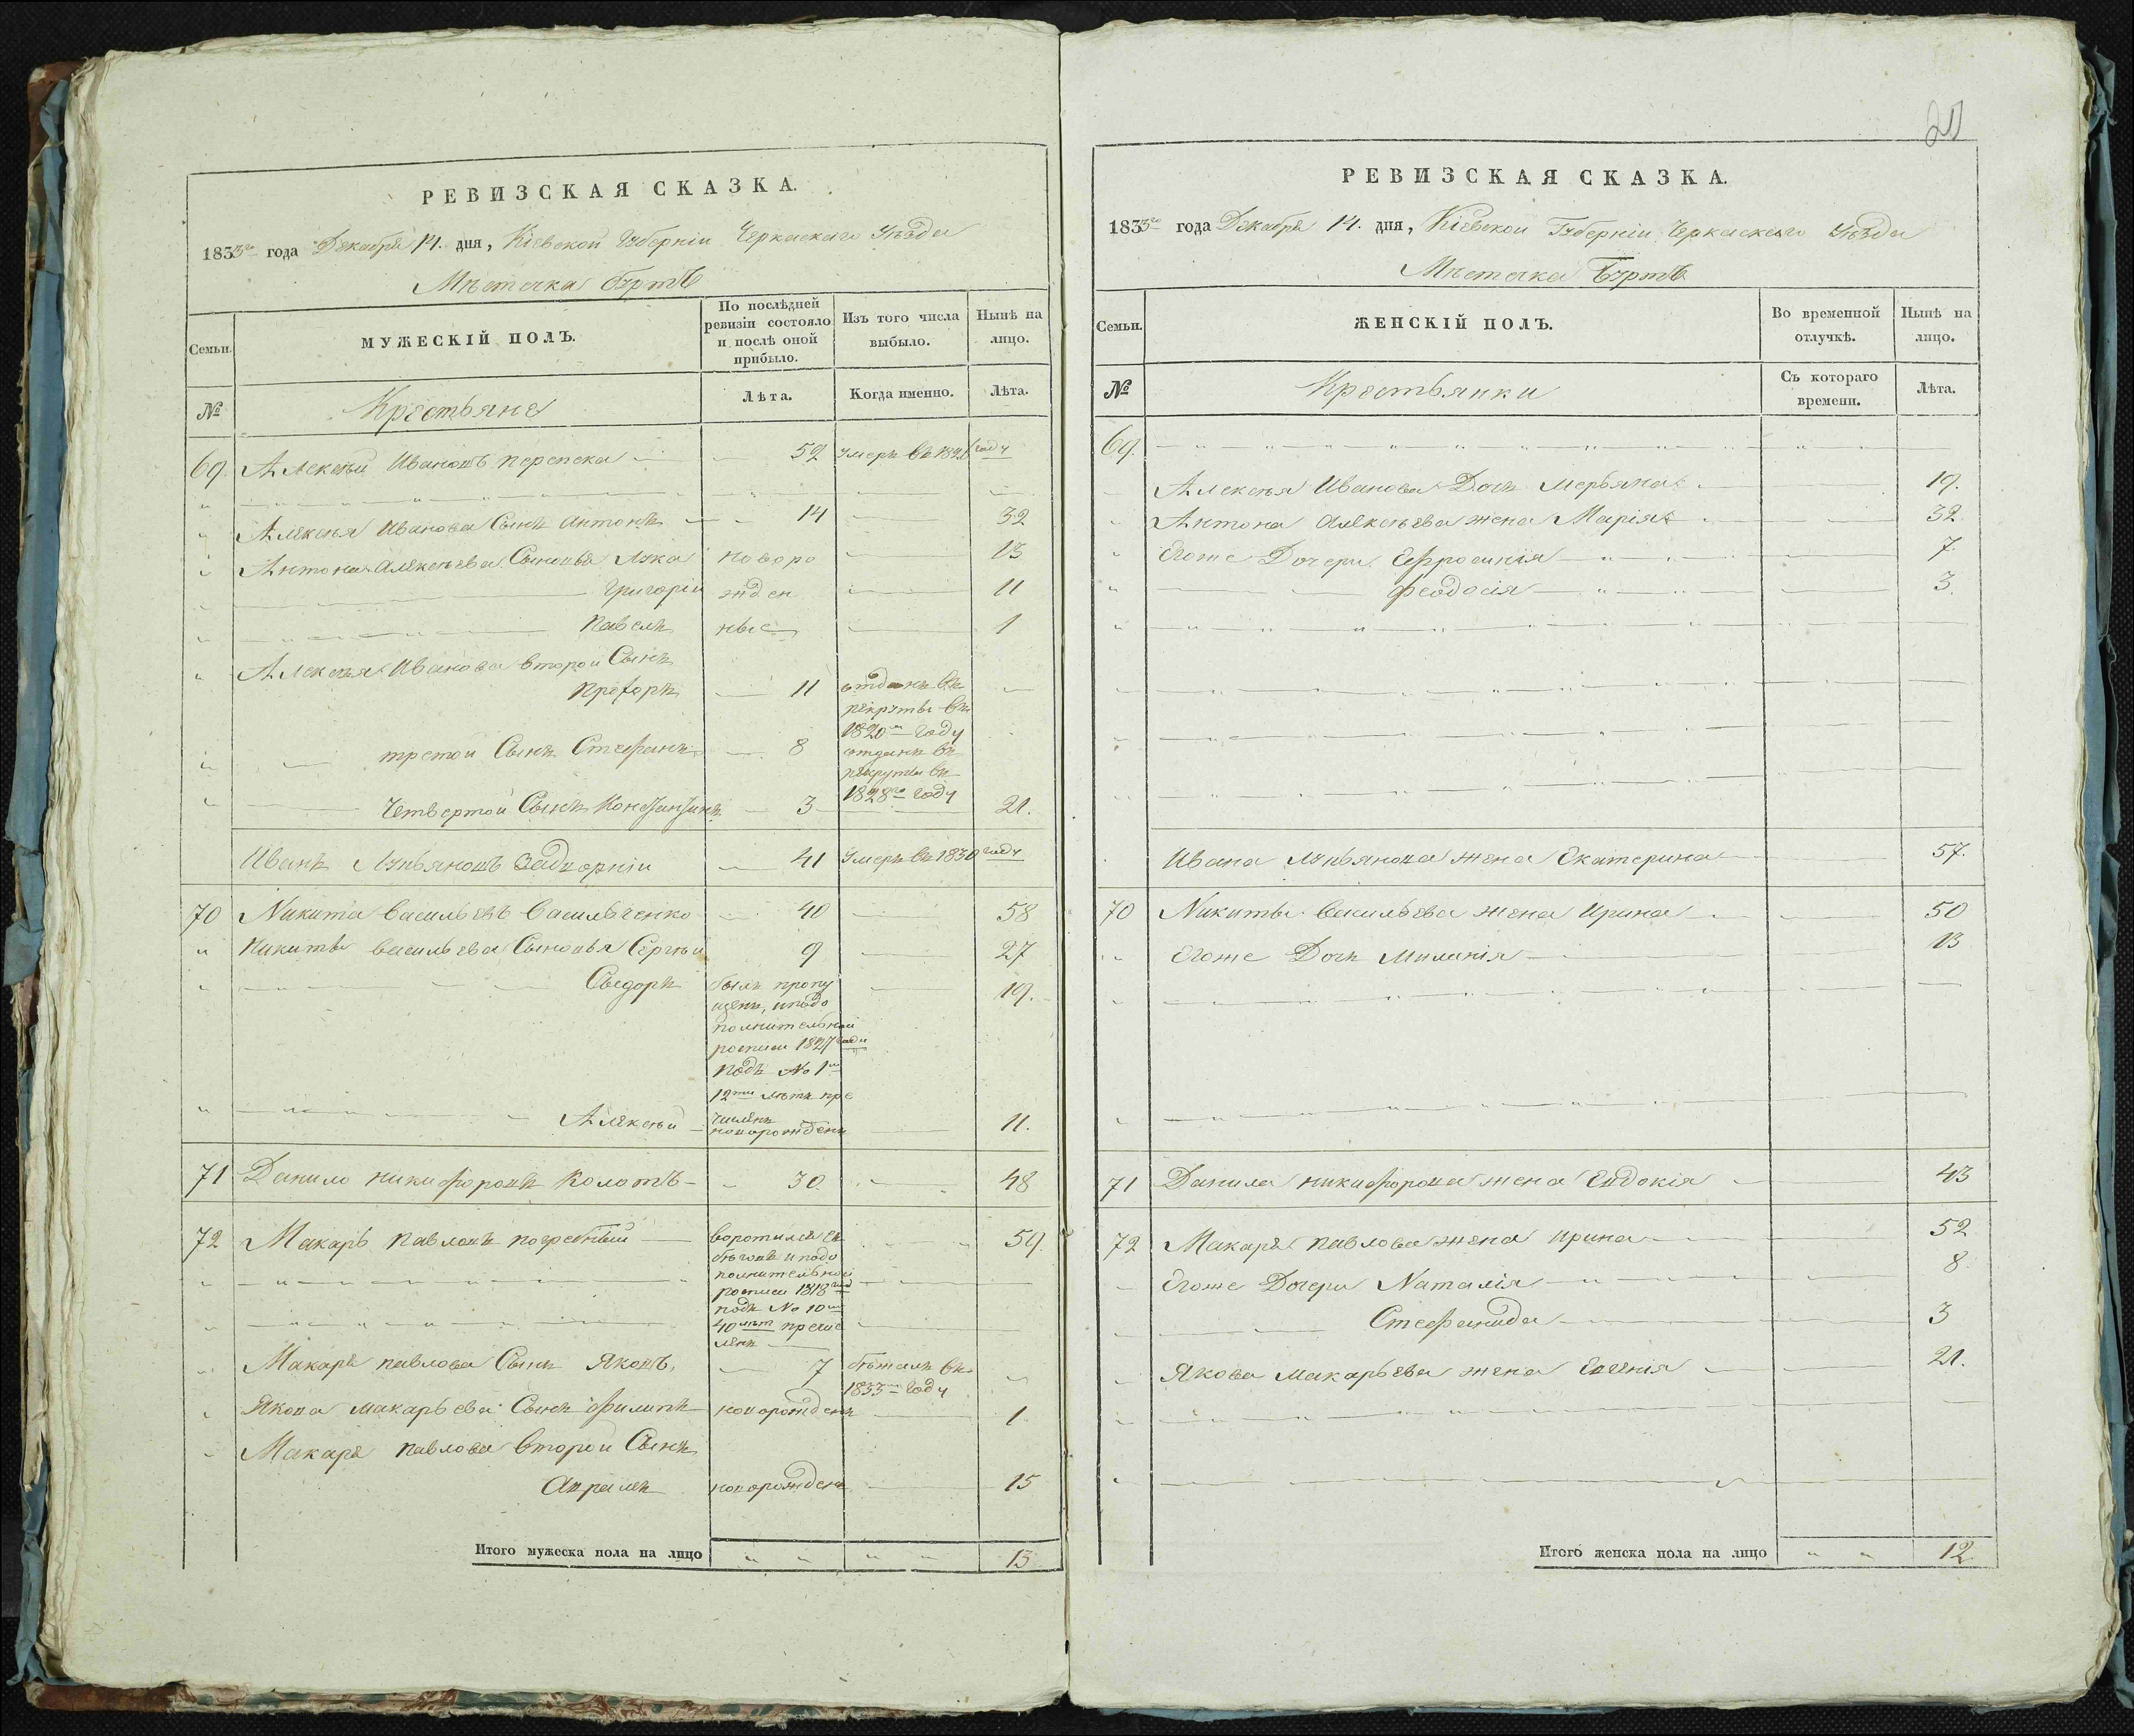 РЕВИЗСКАЯ СКАЗКА.
1833го года Декабря 14. дня, Кіевской Губерніи Черкаскаго Уѣзда
Мѣстечка Буртъ
Семьи.
МУЖЕСКІЙ ПОЛЪ.
По послѣдней ревизіи состояло и послѣ оной прибыло.
Изъ того числа выбыло.
Нынѣ на лицо.
№
Крестьяне
Лѣта.
Когда именно.
Лѣта.
69. Алексѣй Ивановъ Перепека 52 Умеръ въ году
Алексѣя Иванова Сынъ Антонъ 14 32
Антона Алексѣева Сыновья Лука новоро 13
Григорій жден 11
Павелъ ные 1
Алексѣя Иванова второй Сынъ
Прохоръ 11 отданъ въ
рекруты въ
1820м году
третой Сынъ Стефанъ 8 отданъ въ
рекруты въ
1828го году
Четвертой Сынъ Константинъ 3 21.
Иванъ Лукьяновъ Задворній 41 Умеръ въ 1830 году
70 Никита Васильевъ Васильченко 40 58
Никиты Васильева Сыновья Сергѣй 9 27
Сыдоръ былъ пропу 19.
щенъ, и по до
полнительной
росписи 1827 года
подъ № 1м
12ти лѣтъ пре
численъ
Алексѣй новорожденъ 11.
71 Данило Никифоровъ Колотъ 30. 48
72 Макаръ Павловъ Погребный воротился съ 59.
бѣговъ и по до
полнительной
росписи 1818 года
подъ № 10м
40 лѣт пречис
ленъ
Макара Павлова Сынъ Яковъ. 7 бѣжалъ въ
1833м году
Якова Макарьева Сынъ Филипъ новорожденъ 1.
Макара Павлова второй Сынъ
новорожденъ 15
Итого мужеска пола на лицо 13
РЕВИЗСКАЯ СКАЗКА.
1833го года Декабря 14. дня, Кіевской Губерніи Черкаскаго Уѣзда
Мѣстечка Буртъ
Семьи.
ЖЕНСКІЙ ПОЛЪ.
Во временной отлучкѣ.
Нынѣ на лицо.
№
Крестьянки
Съ котораго времени.
Лѣта.
69.
Алексѣя Иванова Дочь Мерьяна 19.
Антона Алексѣева жена Марія 32.
Егоже Дочери Ефросинія 7.
Феодосія 3.
Ивана Лукьянова жена Екатерина 57.
70 Никиты Васильева жена Ирина 50
Егоже Дочь Миланія 13
71 Данила Никифорова жена Евдокія 43
72 Макара Павлова жена Ирина 52
Егоже Дочери Наталія 8.
Стефанида 3
Якова Макарьева жена Евгенія 21.
Итого женска пола на лицо 12